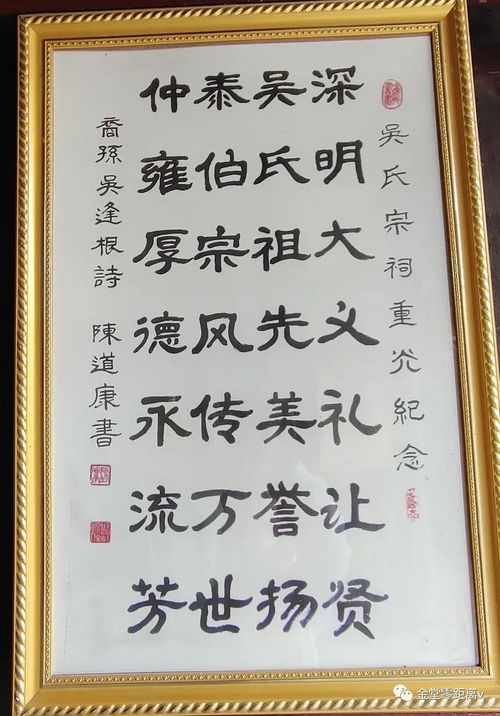 吴氏宗祠重光纪念
深明大义礼让贤
吴氏祖先美誉扬
泰伯宗风传万世
仲雍厚德永流芳
裔孫吴逢根詩 陳道康書
金堂零距离v